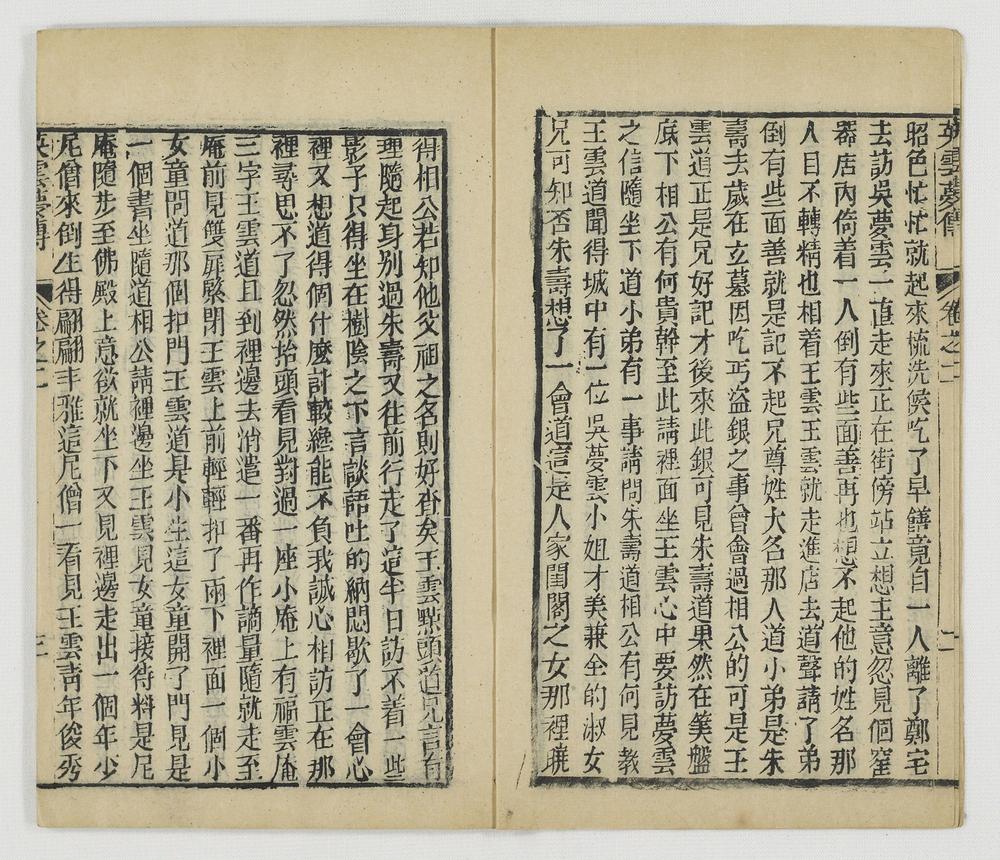 英雲夢傳 卷之二 二
昭色忙忙就起來梳洗俟吃了早饍竟自一人離了鄭宅
去訪吳夢雲一直走來正在街傍站立想主意忽見個窑
器店內倚着一人倒有些面善再也想不起他的姓名那
人目不轉精也相着王雲王雲就走進店去道聲請了弟
倒有些面善就是記不起兄尊姓大名那人道小弟是朱
壽去歲在立墓因吃丐盜銀之事曾會過相公的可是王
雲道正是兄好記才後來此銀可見朱壽道果然在筭盤
底下相公有何貴幹至此請裡面坐王雲心中要訪夢雲
之信隨坐下道小弟有一事請問朱壽道相公有何見教
王雲道聞得城中有一位吳夢雲小姐才美兼全的淑女
兄可知否朱壽想了一會道這是人家閨閣之女那裡曉
得相公若知他父祖之名則好查矣王雲㸃頭道兄言有
理隨起身別過朱壽又往前行走了這半日訪不着一些
影子只得坐在樹陰之下言談語吐的納悶歇了一會心
裡又想道得個什麼計較纔能不負我誠心相訪正在那
裡尋思不了忽然抬頭看見對過一座小庵上有福雲庵
三字王雲道且到裡邊去消遣一番再作謫量隨就走至
庵前見雙扉緊閉王雲上前輕輕扣了兩下裡面一個小
女童問道那個扣門王雲道是小生這女童開了門見是
一個書坐隨道相公請裡邊坐王雲見女童接待料是尼
庵隨步至佛殿上意欲就坐下又見裡邊走出一個年少
尼僧來倒生得翩翩丰雅這尼僧一看見王雲靑年俊秀
英雲夢傳 卷之二 三